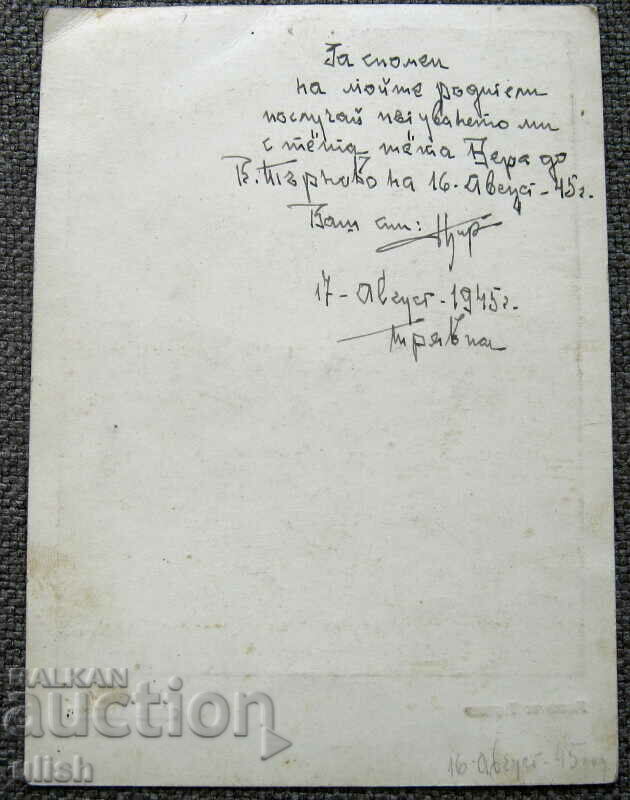 За спомен
на мойте родители
послучай пътуването ми
с тётя тётя Вера до
В. Търново на 16. Август - 45 г.
Ваш син:
17 - Август - 1945 г.
Трявна
16. Август - 45 год
BALKAN
auction
ulish